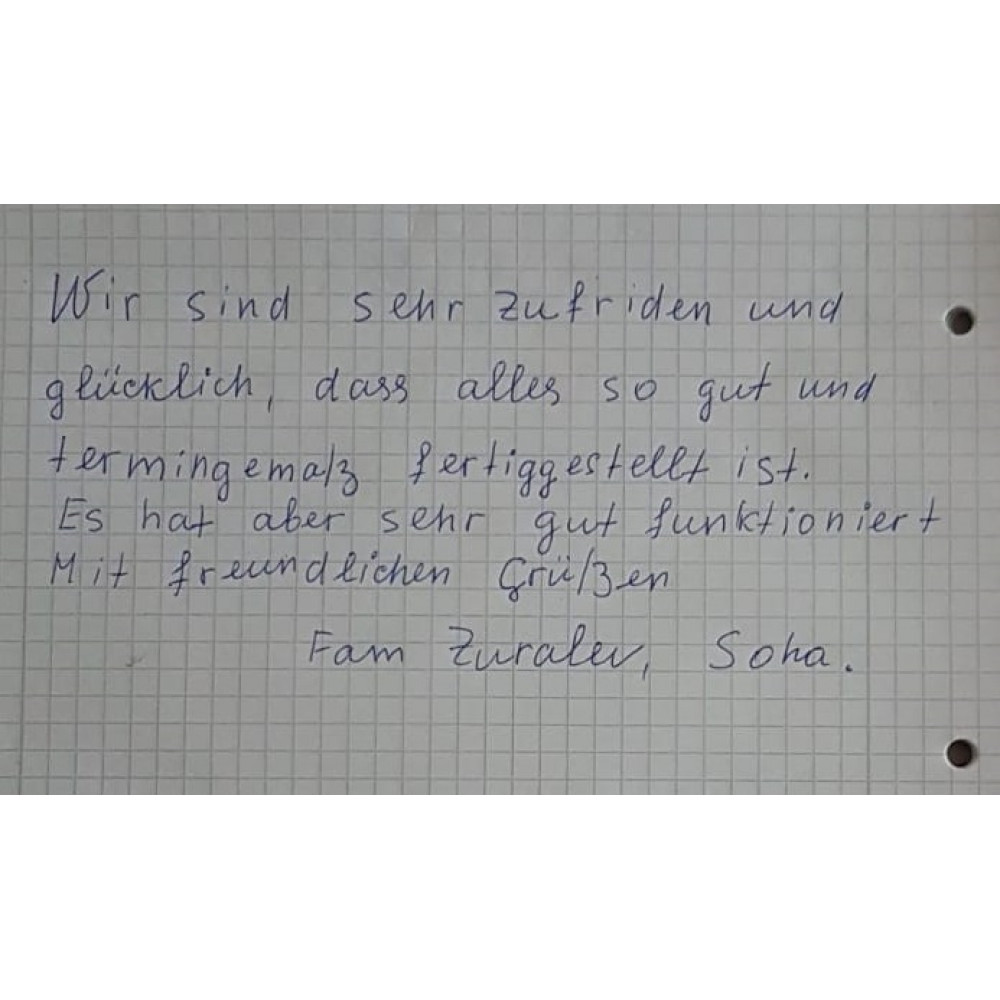 Wir sind sehr zufriden und
glücklich, dass alles so gut und
termingemaß fertiggestellt ist.
Es hat aber sehr gut funktioniert
Mit freundlichen Grüßen
Fam Soha.